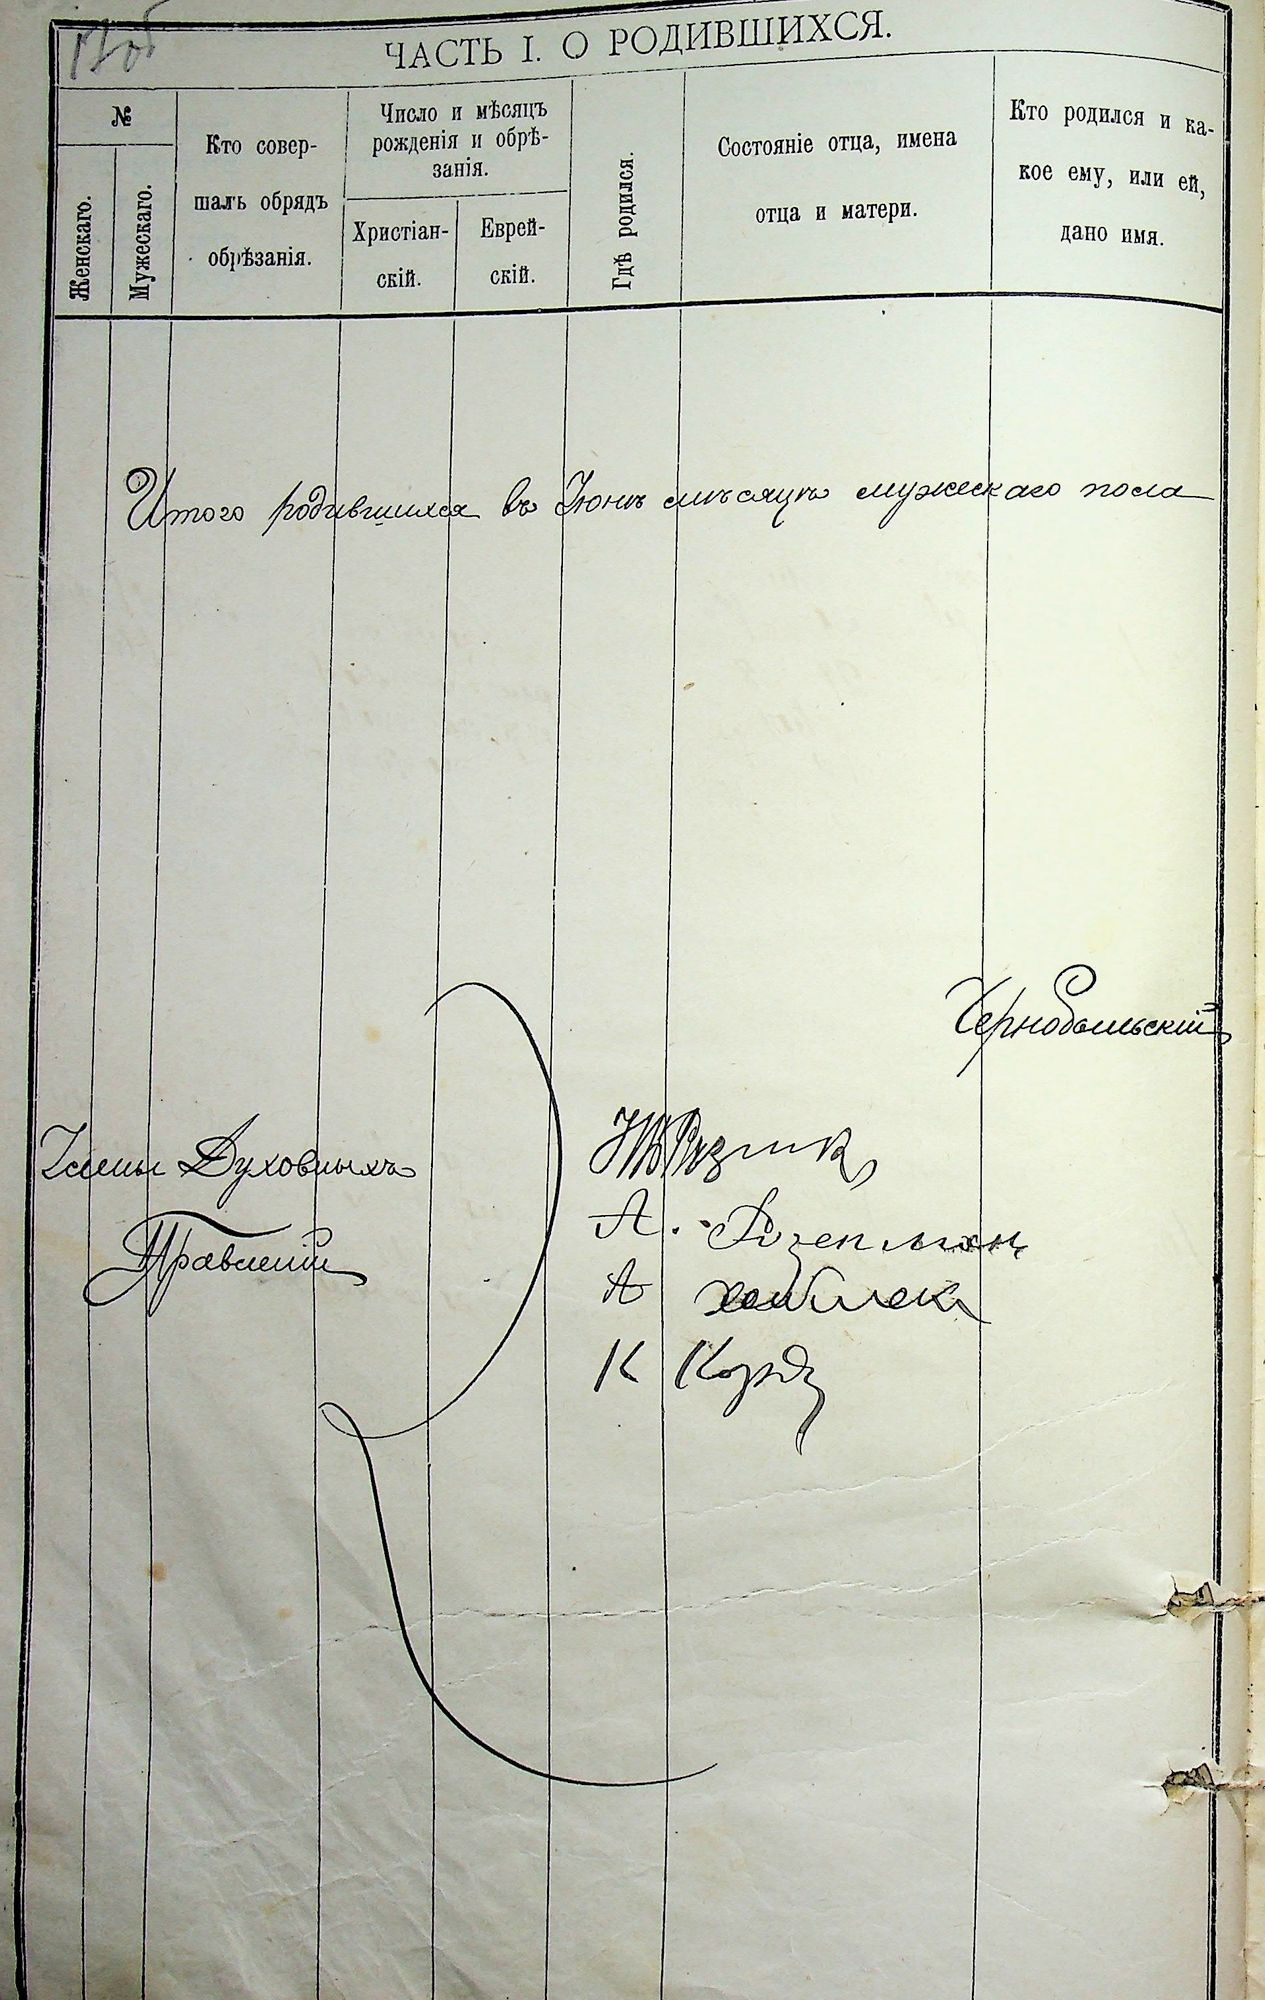 17об
ЧАСТЬ I. О РОДИВШИХСЯ.
№
Женскаго.
Мужескаго.
Кто совер-
шалъ обрядъ
обрѣзанія.
Число и мѣсяцъ
рожденія и обрѣ-
занія.
Христіан-
скій.
Еврей-
скій.
Гдѣ родился.
Состояніе отца, имена
отца и матери.
Кто родился и ка-
кое ему, или ей,
дано имя.
Итого родившихся въ Іюнѣ мѣсяцѣ мужескаго пола
Чернобыльскій
Члены Духовныхъ
Правленій
А.
А
К